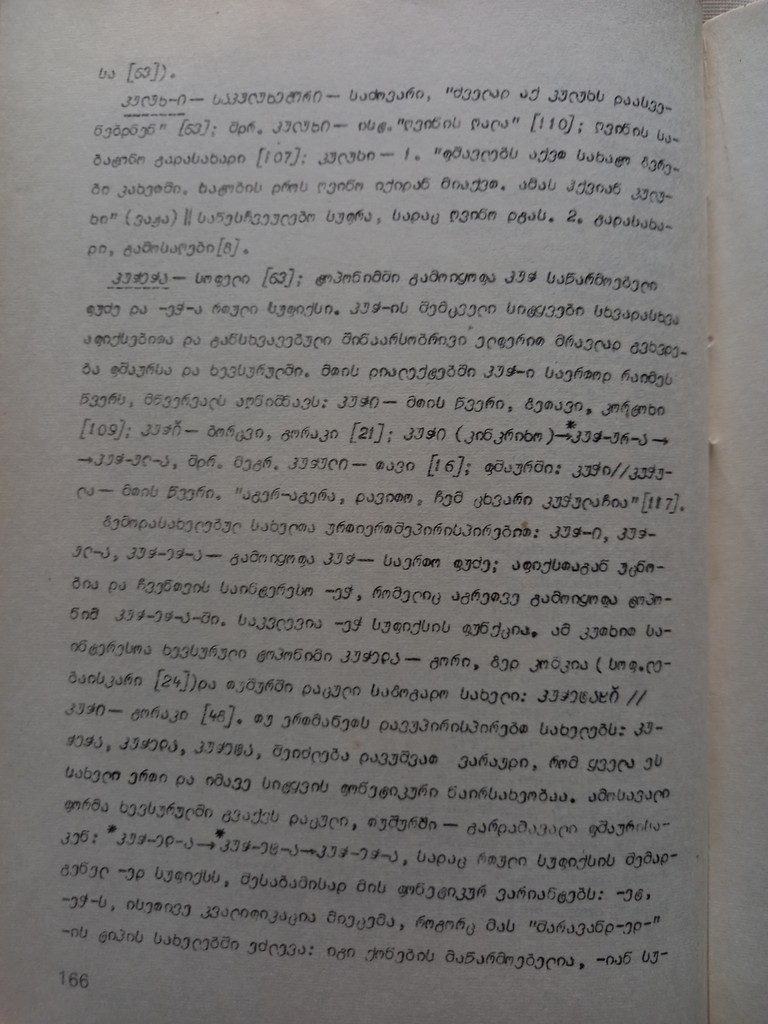 სა [63]).
კულუხ-ი — საკულუხეტრი — საძოვარი, "ძველად აქ კულუხს დაასვე-
ნებდნენ" [53]; შდრ. კულუხი — ისტ. "ღვინის ღალა" [110]; ღვინის სა-
ბატონო გადასახადი [107]; კულუხი — 1. "ფშავლებს აქვთ სახატო ზვრე-
ბი კახეთში. ხატობის დროს ღვინო იქიდან მიაქვთ. ამას ჰქვიან კულუ-
ხი" (ვაჟა) || საწესჩვეულებო სუფრა, სადაც ღვინო დგას. 2. გადასახა-
დი, გამოსაღები [8].
კუჭეჭა — სოფელი [63]; ტოპონიმში გამოიყოფა კუჭ საწარმოებელი
ფუძე და -ეჭ-ა რთული სუფიქსი. კუჭ-ის შემცველი სიტყვები სხვადასხვა
აფიქსებითა და განსხვავებული შინაარსობრივი ელფერით მრავლად გვხვდე-
ბა ფშაურსა და ხევსურულში. მთის დიალექტებში კუჭ-ი საერთოდ რაიმეს
წვერს, მწვერვალს აღნიშნავს: კუჭი — მთის წვერი, ზეთავი, კორტოხი
[109]; კუჭი — ბორცვი, გორაკი [21]; კუჭი (კინკრიხო) → *კუჭ-ურ-ა →
→ კუჭ-ულ-ა, შდრ. მეგრ. კუჭული — თავი [16]; ფშაურში: კუჭი//კუჭუ-
ლა — მთის წვერი. "აგერ-აგერა, დავითო, ჩემ ცხვარი კუჭულაჩია" [117].
ზემოდასახელებულ სახელთა ურთიერთშეპირისპირებით: კუჭ-ი, კუჭ-
ულ-ა, კუჭ-ეჭ-ა — გამოიყოფა კუჭ — საერთო ფუძე; აფიქსთაგან უცნო-
ბია და ჩვენთვის საინტერესო -ეჭ, რომელიც აგრეთვე გამოიყოფა ტოპო-
ნიმ კუჭ-ეჭ-ა-ში. საკვლევია -ეჭ სუფიქსის ფუნქცია. ამ კუთხით სა-
ინტერესოა ხევსურული ტოპონიმი კუჭედა — გორი, ზედ კოშკია (სოფ. ლე-
ბაისკარი [24]) და თუშურში დაცული საზოგადო სახელი: //
კუჭი — გორაკი [48]. თუ ერთმანეთს დავუპირისპირებთ სახელებს: კუ-
ჭეჭა, კუჭედა, კუჭეტა, შეიძლება დავუშვათ ვარაუდი, რომ ყველა ეს
სახელი ერთი და იმავე სიტყვის ფონეტიკური ნაირსახეობაა. ამოსავალი
ფორმა ხევსურულში გვაქვს დაცული, თუშურში — გარდამავალი ფშაურისა-
კენ: *კუჭ-ედ-ა → *კუჭ-ეტ-ა → კუჭ-ეჭ-ა, სადაც რთული სუფიქსის შემად-
გენელ -ედ სუფიქსს, შესაბამისად მის ფონეტიკურ ვარიანტებს: -ეტ,
-ეჭ-ს, ისეთივე კვალიფიკაცია მიეცემა, როგორც მას "შარავანდ-ედ-"
-ის ტიპის სახელებში ეძლევა: იგი ქონების მაწარმოებელია, -იან სუ-
166